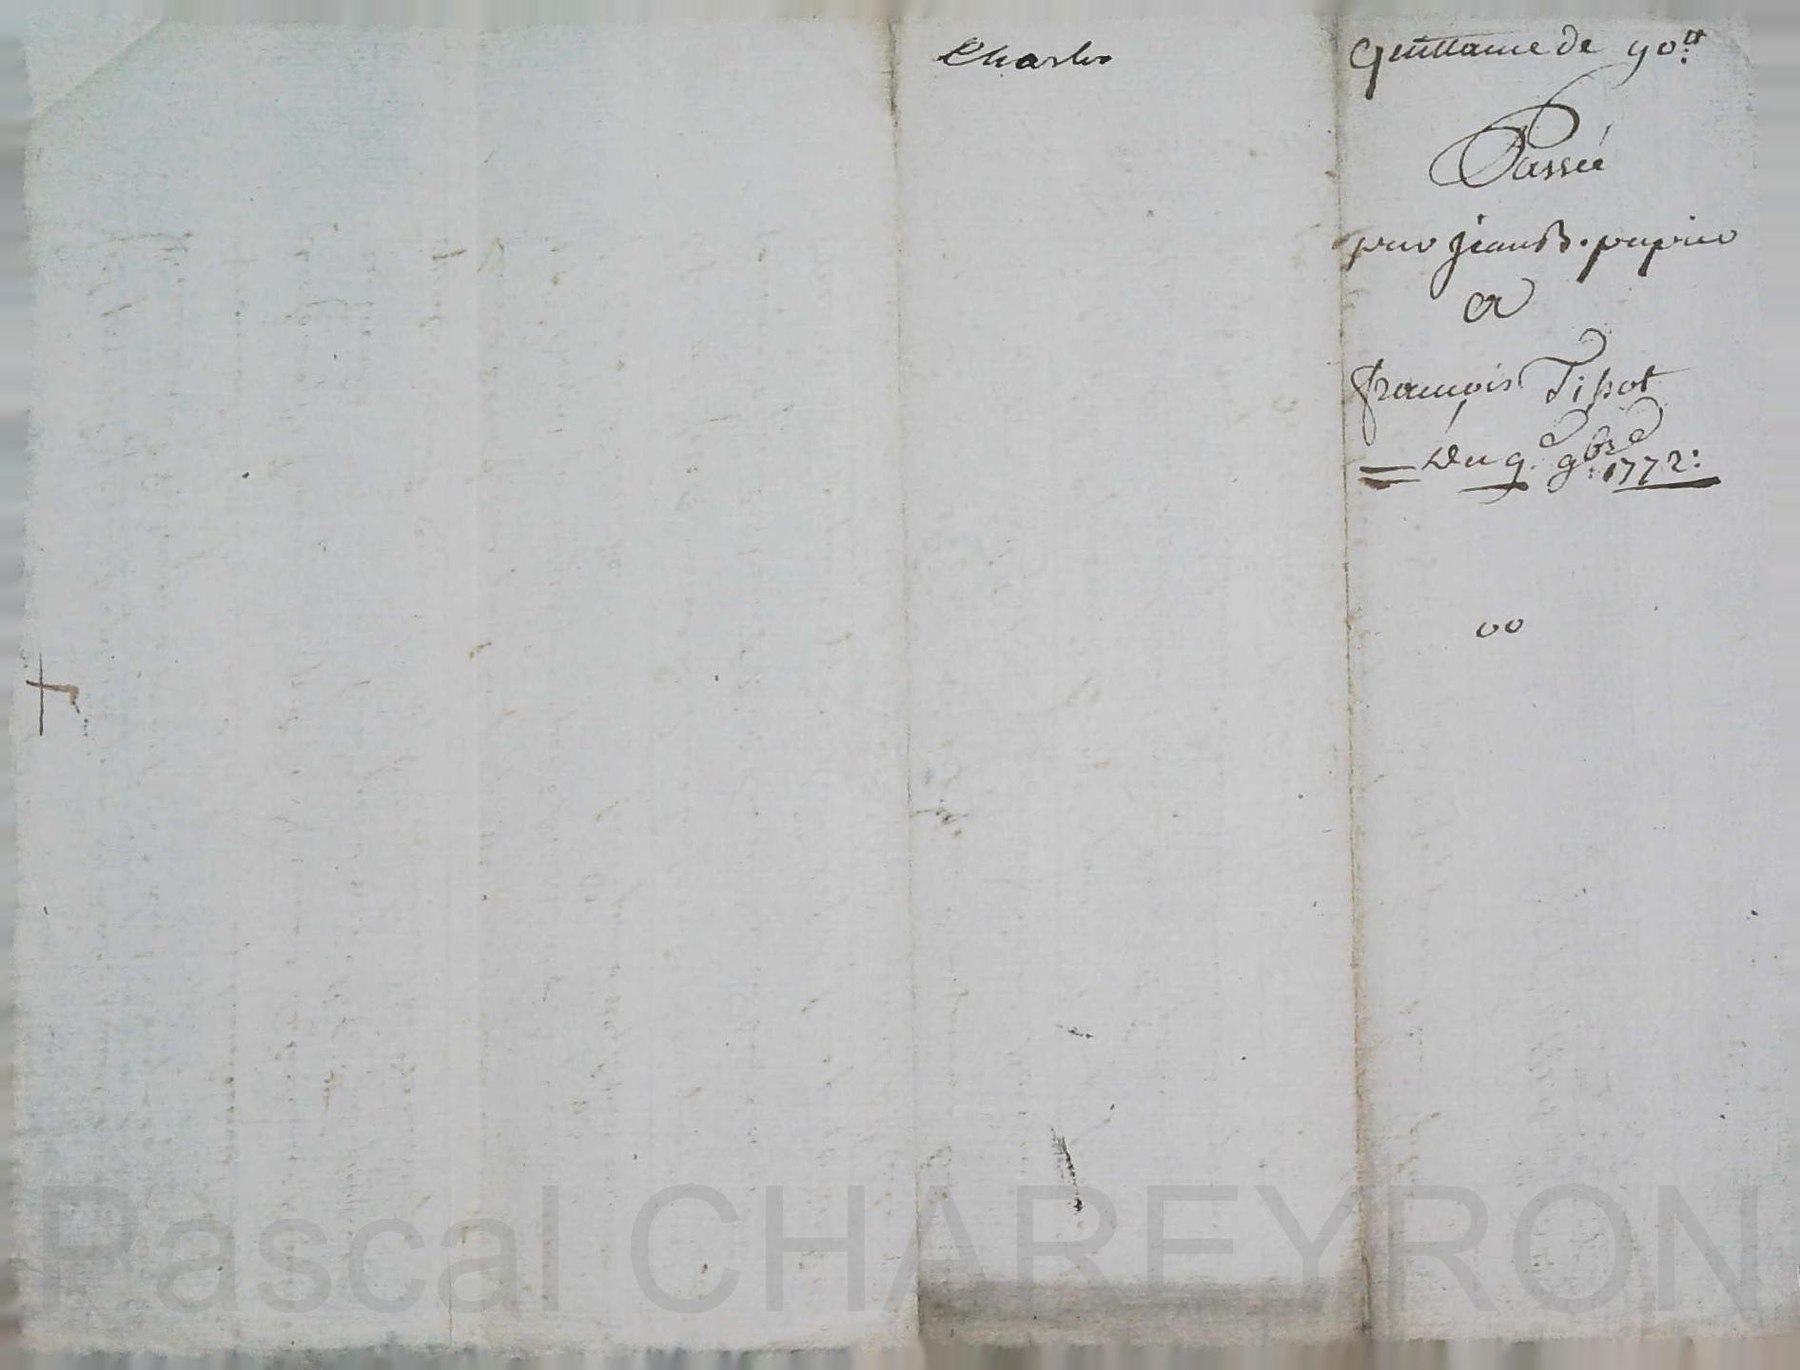 Charles
Quittance de 90 lt
Passée
par Jean B. papier
A
françois Tissot
Du 9. 9bre 1772:
00
Pascal CHAREYRON